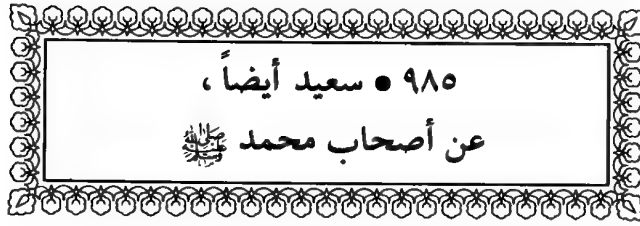 ٩٨٥ • سعيد أيضاً ،
عن أصحاب محمد ﷺ